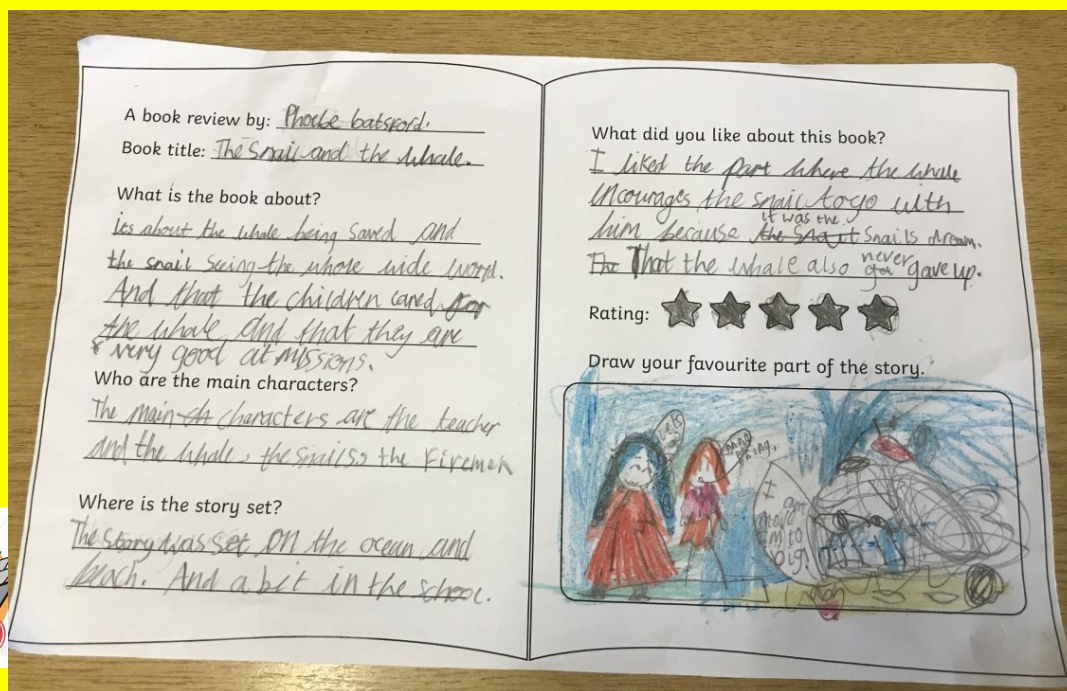 A book review by: Phoebe batsford.
Book title: The Snail and the whale.
What is the book about?
its about the whale being saved and
the snail seeing the whole wide world.
And that the children cared for
the whale and that they are
very good at missions.
Who are the main characters?
The main ch characters are the teacher
and the whale, the snails, the Firemen
Where is the story set?
The story was set on the ocean and
beach. And a bit in the school.
What did you like about this book?
I liked the part where the whale
encourages the snail to go with
it was the
him because the snail Snails dream.
never
The That the whale also gav gave up.
Rating:
Draw your favourite part of the story.
lets
I
big!